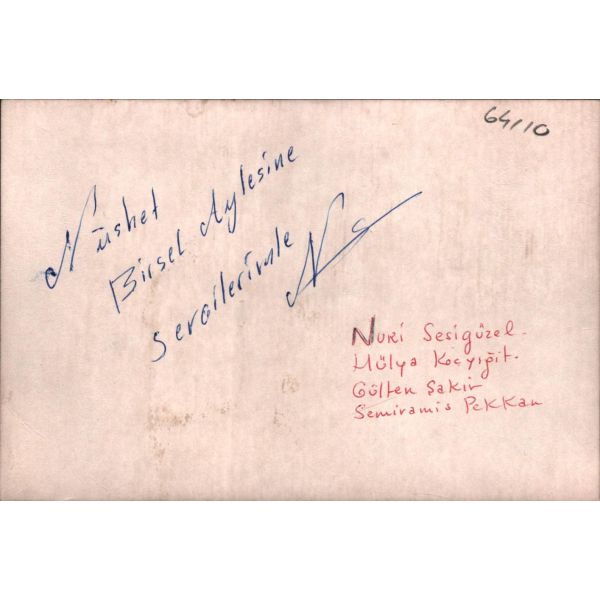 64/10
Nüshet
Birsel Aylesine
sevgilerimle
Nuri Sesigüzel.
Hülya Koçyiğit.
Gülten Şakir
Semiramis Pekkan